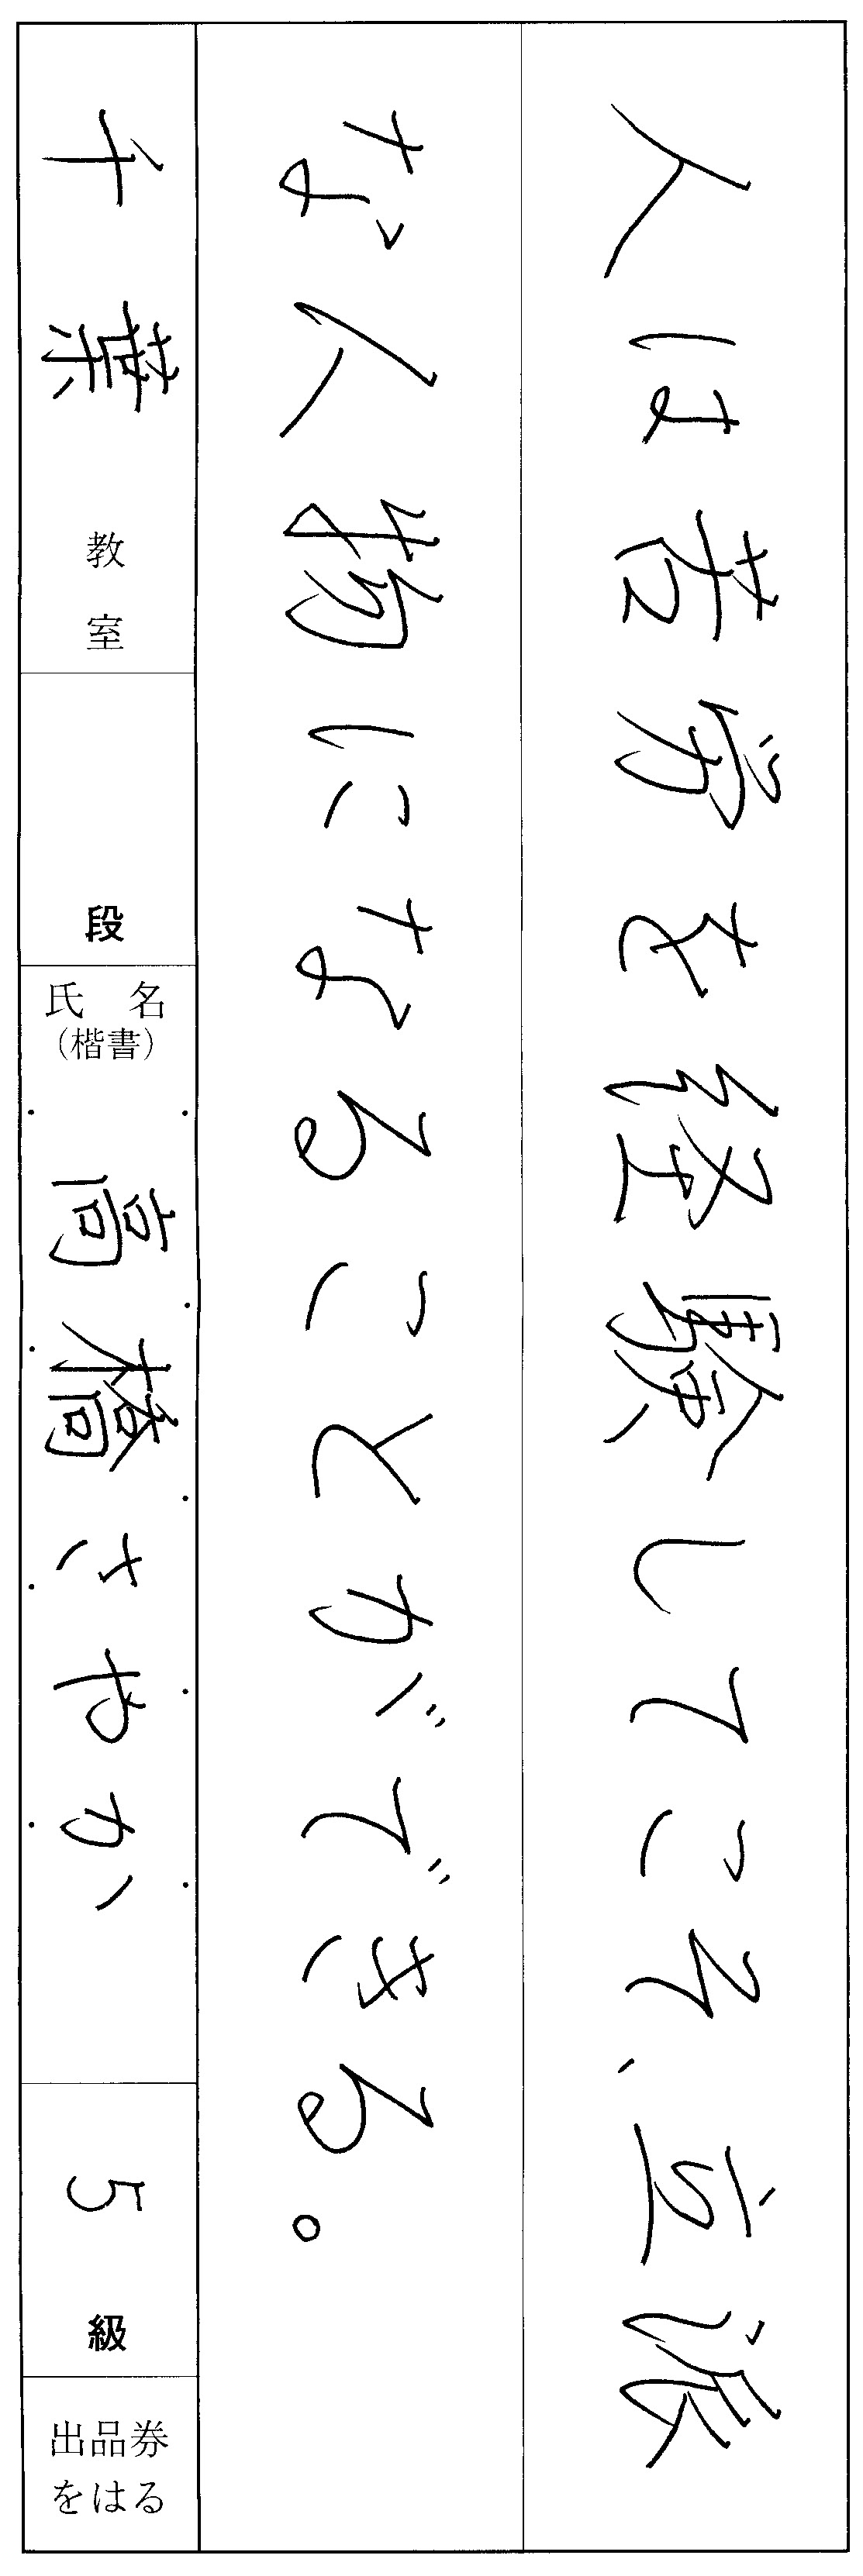 人は苦労を経験してこそ、立派
な人物になることができる。
千葉教室
段
氏名
(楷書)
高橋さやか
5級
出品券
をはる